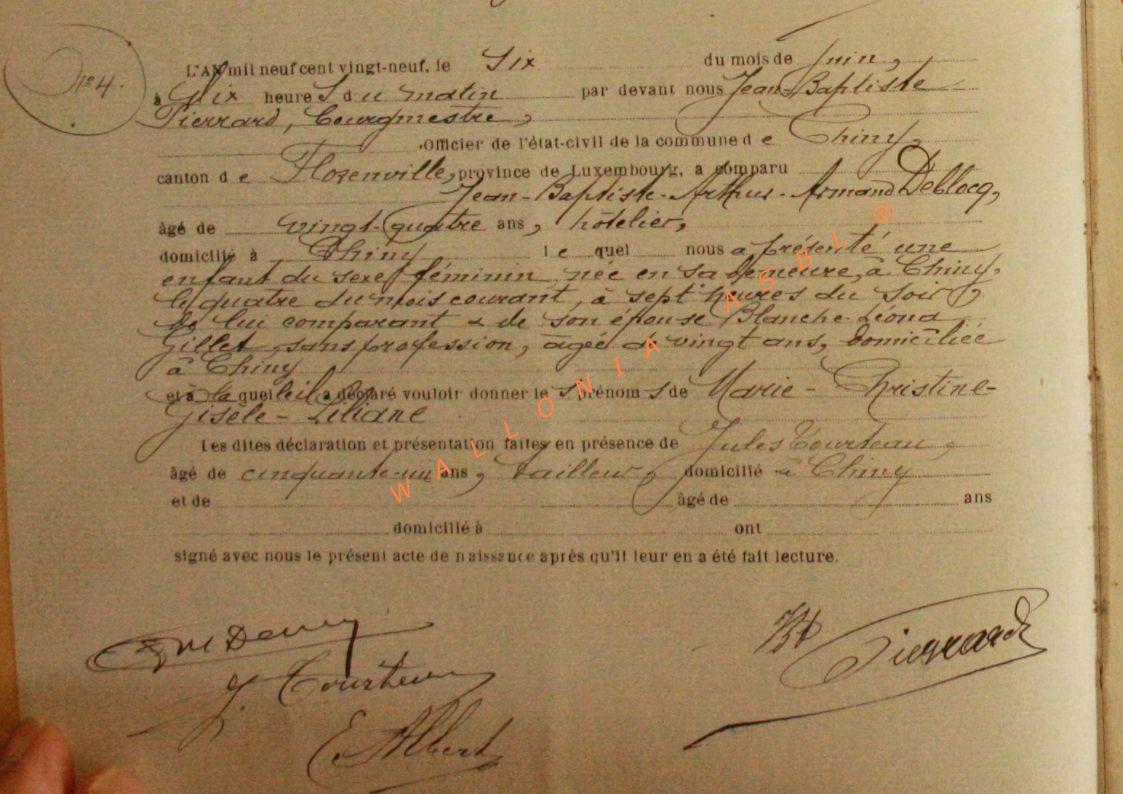 N° 4.
L'AN mil neuf cent vingt-neuf, le Six du mois de Juin,
à dix heures du matin par devant nous Jean-Baptiste
Pierrard, Bourgmestre,
Officier de l'état-civil de la commune de Chiny,
canton de Florenville, province de Luxembourg, a comparu
Jean-Baptiste-Arthur-Armand Deblocq,
âgé de vingt-quatre ans, hôtelier,
domicilié à Chiny lequel nous a présenté une
enfant du sexe féminin née en sa demeure, à Chiny,
le quatre du mois courant, à sept heures du soir,
de lui comparant & de son épouse Blanche-Léona
Gillet, sans profession, âgée de vingt ans, domiciliée
à Chiny
et à laquelle il a déclaré vouloir donner les prénoms de Marie-Christine-
Gisèle-Liliane
Les dites déclaration et présentation faites en présence de Jules Tourteau,
âgé de cinquante-un ans, tailleur, domicilié à Chiny
et de âgé de ans
domicilié à ont
signé avec nous le présent acte de naissance après qu'il leur en a été fait lecture.
J. Tourteau
E. Albert
Pierrard
WALLONIA ASBL ®